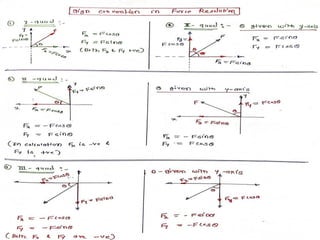 Sign convention in Force Resolution
① I - quad :-
Fx = Fcosθ
Fy = Fsinθ
(Both Fx & Fy +ve)
② I - quad :- θ given with y-axis
Fy = Fcosθ
Fx = Fsinθ
Fx = Fsinθ
Fy = Fcosθ
③ II quad :-
Fy = Fsinθ
Fx = Fcosθ
Fx = Fcosθ
Fy = Fsinθ
(In calculation Fx is -ve &
Fy is +ve)
θ given with y-axis
Fy = Fcosθ
Fx = Fsinθ
Fx = Fsinθ
Fy = Fcosθ
III - quad :-
Fx = Fcosθ
Fy = Fsinθ
Fx = - Fcosθ
Fy = - Fsinθ
(Both Fx & Fy are -ve)
θ - given with y-axis
Fx = Fsinθ
Fy = Fcosθ
Fx = - Fsinθ
Fy = - Fcosθ